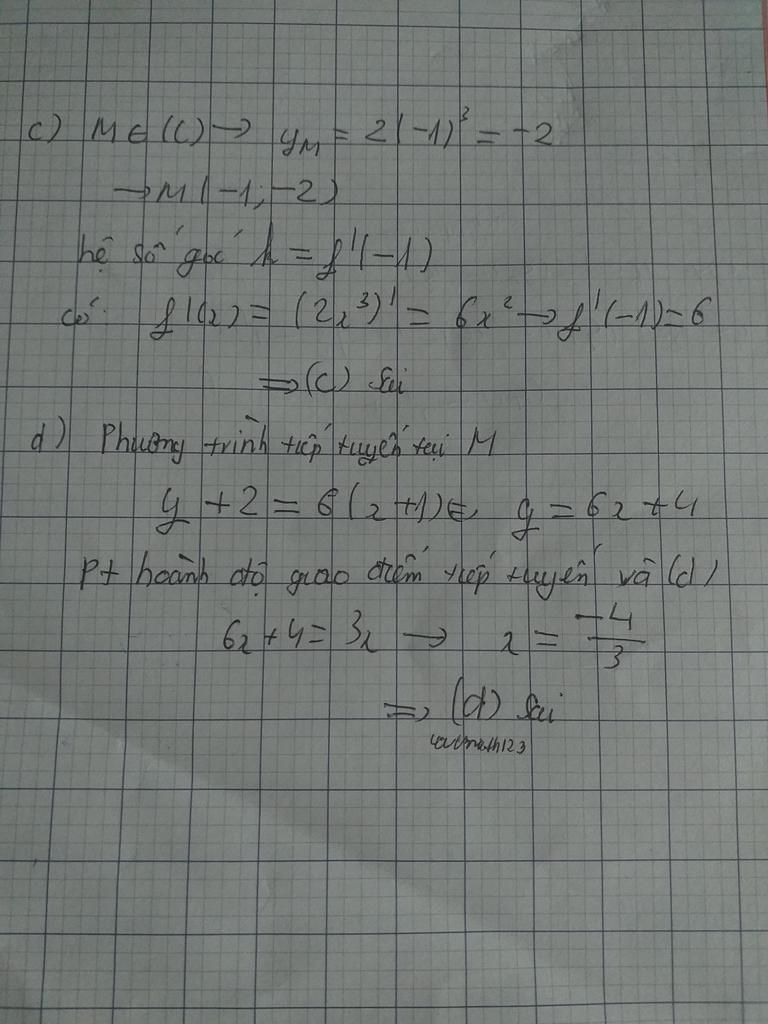 c) M ∈ (C) → y_M = 2(-1)³ = -2
→ M(-1; -2)
hệ số góc k = f'(-1)
có f'(x) = (2x³)' = 6x² → f'(-1) = 6
⇒ (c) sai
d) Phương trình tiếp tuyến tại M
y + 2 = 6(x+1) ⇔ y = 6x + 4
Pt hoành độ giao điểm tiếp tuyến và (d)
6x + 4 = 3x → x = -4/3
⇒ (d) sai